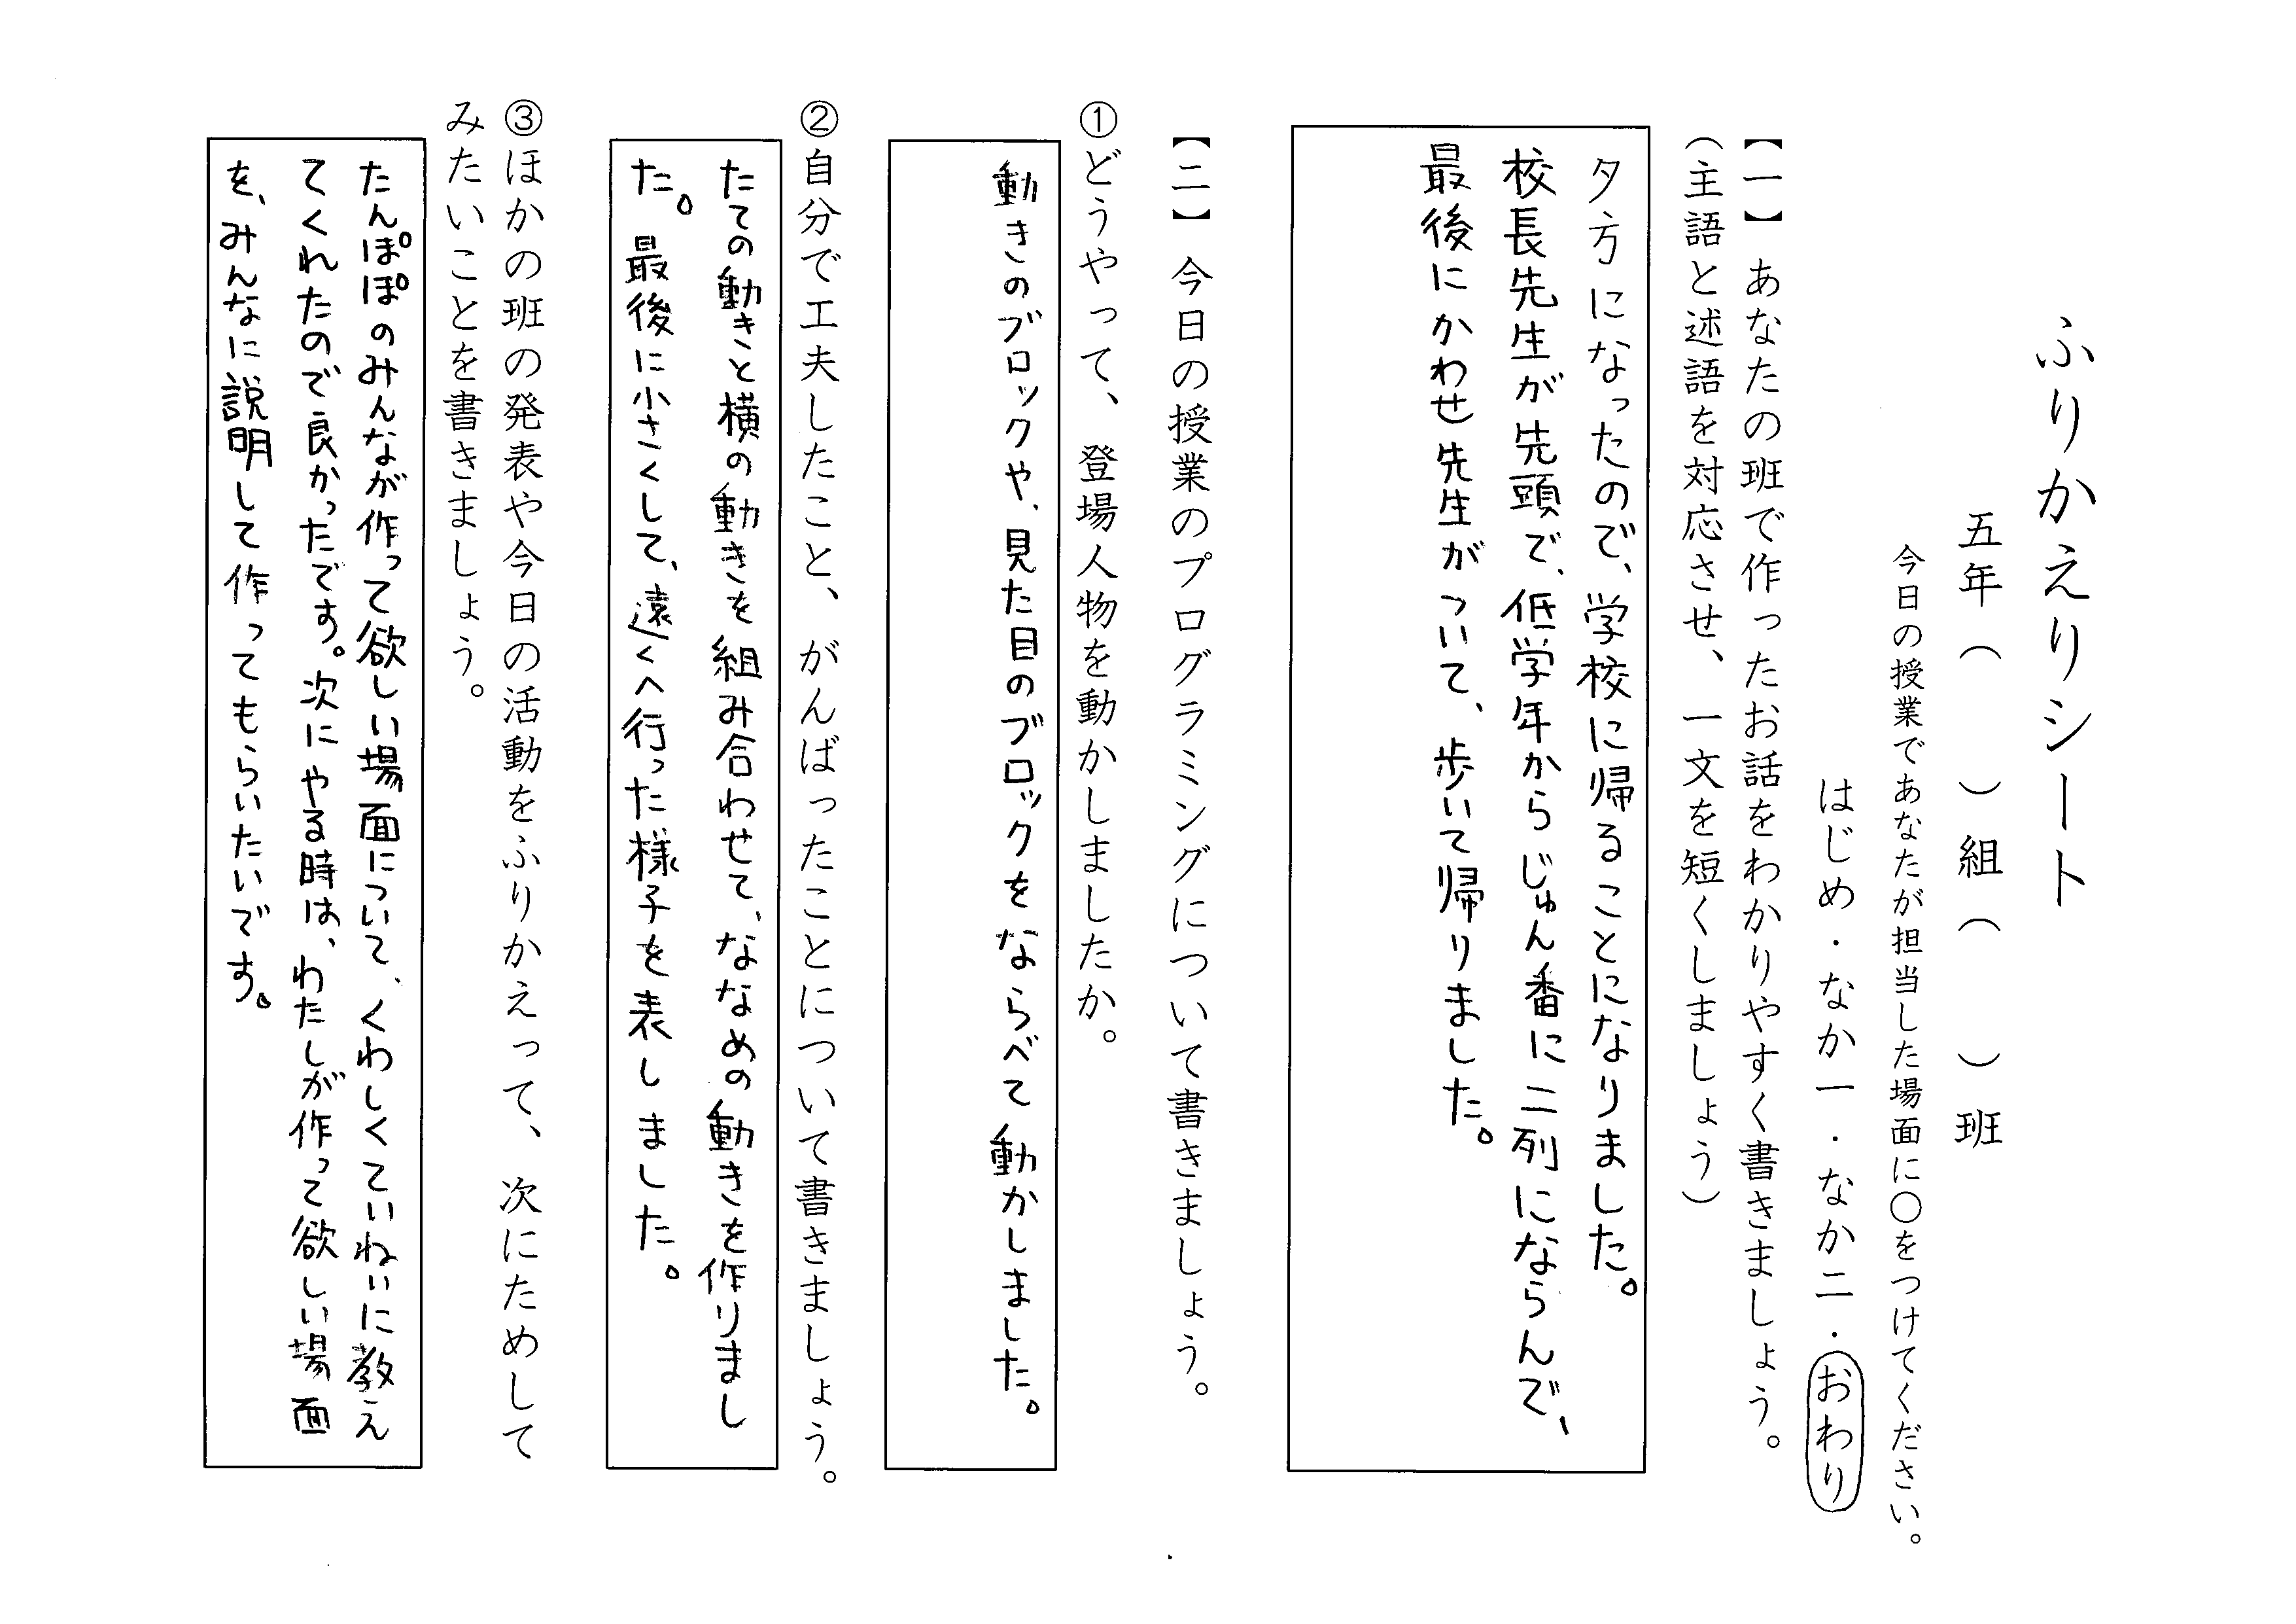 ふりかえりシート
五年（　　）組（　　）班
今日の授業であなたが担当した場面に〇をつけてください。
はじめ・なか一・なか二・おわり
【一】あなたの班で作ったお話をわかりやすく書きましょう。
（主語と述語を対応させ、一文を短くしましょう）
夕方になったので、学校に帰ることになりました。
校長先生が先頭で、低学年からじゅん番に二列にならんで、
最後にかわせ先生がついて、歩いて帰りました。
【二】今日の授業のプログラミングについて書きましょう。
①どうやって、登場人物を動かしましたか。
動きのブロックや、見た目のブロックをならべて動かしました。
②自分で工夫したこと、がんばったことについて書きましょう。
たての動きと横の動きを組み合わせて、ななめの動きを作りまし
た。最後に小さくして、遠くへ行った様子を表しました。
③ほかの班の発表や今日の活動をふりかえって、次にためして
みたいことを書きましょう。
たんぽぽのみんなが作って欲しい場面について、くわしくていねいに教え
てくれたので良かったです。次にやる時は、わたしが作って欲しい場面
を、みんなに説明して作ってもらいたいです。